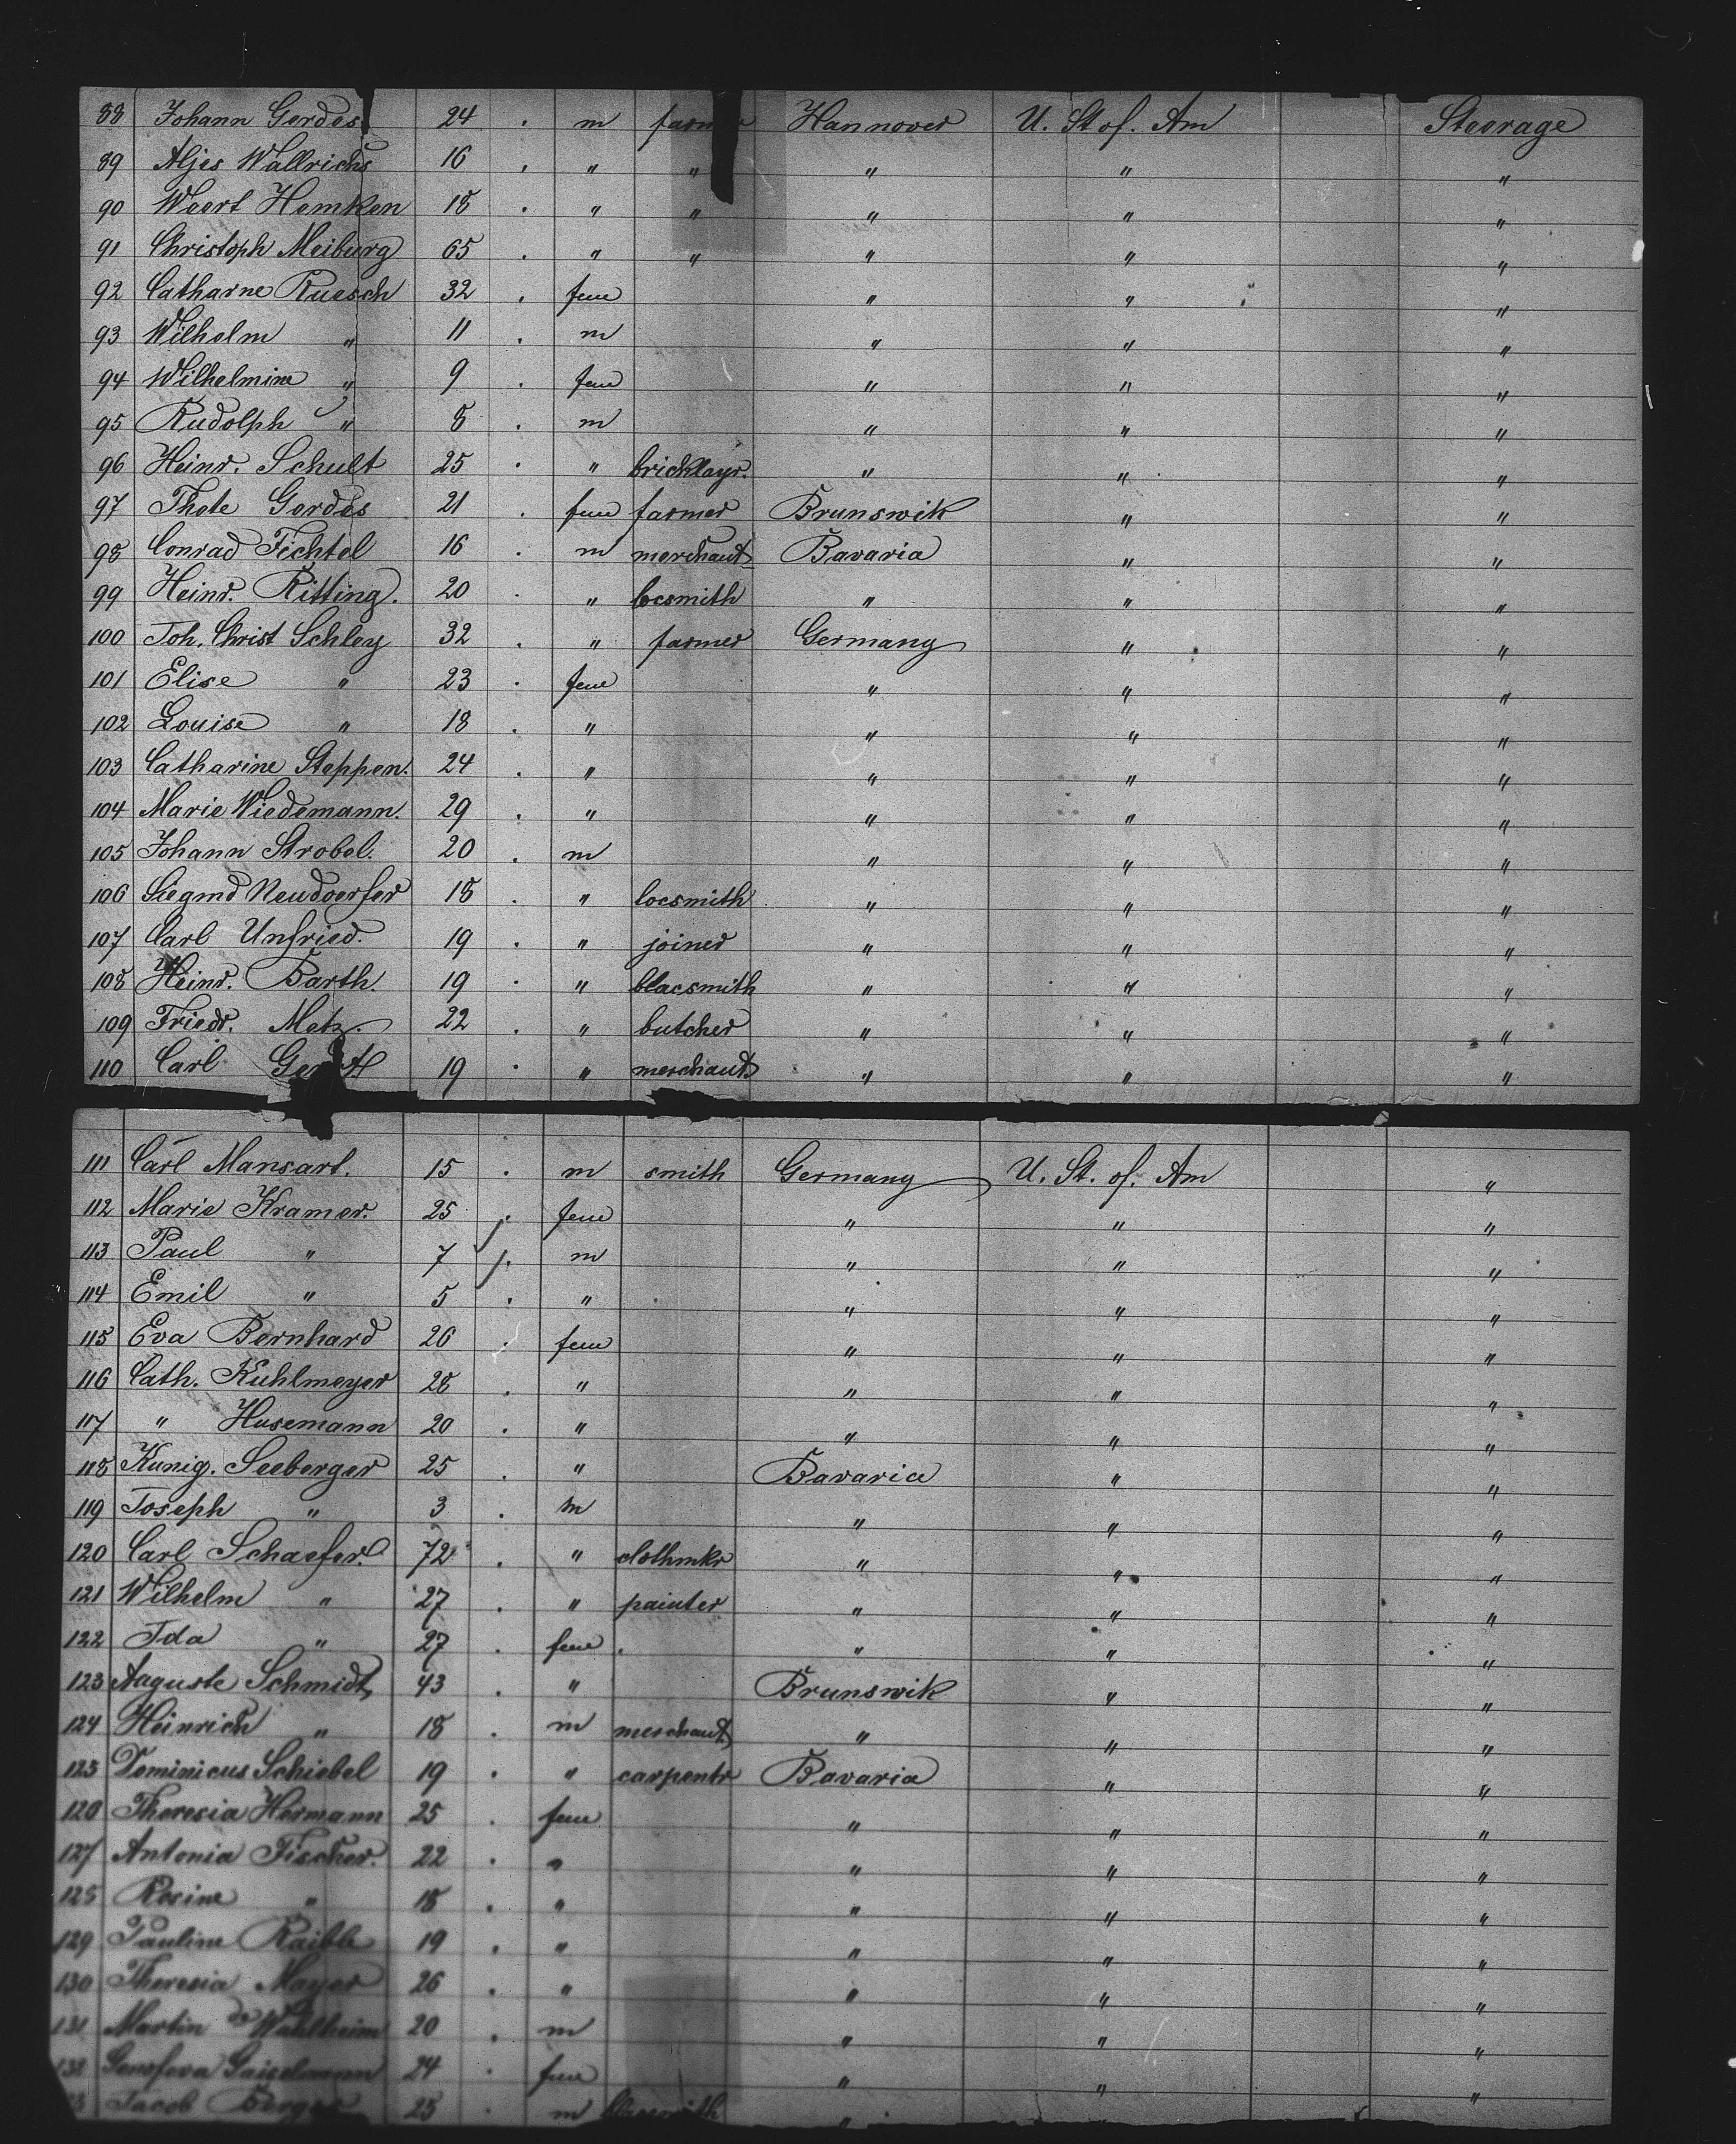 88 Johann Gerdes 24 . m farmer Hannover U. St of. Am Steerage
89 Aljes Wallrichs 16 . " " " " "
90 Weert Hemken 18 . " " " " "
91 Christoph Meiburg 65 . " " " " "
92 Catharne Ruesch 32 . fem " " "
93 Wilhelm " 11 . m " " "
94 Wilhelmine " 9 . fem " " "
95 Rudolph " 8 . m " " "
96 Heinr. Schult 25 . " bricklayr. " " "
97 Thete Gerdes 21 . fem farmer Brunswik " "
98 Conrad Fichtel 16 . m merchant Bavaria " "
99 Heinr. Ritting. 20 . " locsmith " " "
100 Joh. Christ Schley 32 . " farmer Germany " "
101 Elise " 23 . fem " " "
102 Louise " 18 . " " " "
103 Catharine Steppen. 24 . " " " "
104 Marie Wiedemann. 29 . " " " "
105 Johann Strobel. 20 . m " " "
106 Siegmd Neudoerfer 18 . " locsmith " " "
107 Carl Unfried. 19 . " joiner " " "
108 Heinr. Barth. 19 . " blacsmith " " "
109 Friedr. Metz. 22 . " butcher " " "
110 Carl 19 . " merchant " " "
111 Carl Mansart. 15 . m smith Germany U. St. of. Am "
112 Marie Kramer. 25 . fem " " "
113 Paul " 7 . m " " "
114 Emil " 5 . " " " "
115 Eva Bernhard 26 . fem " " "
116 Cath. Kuhlmeyer 28 . " " " "
117 " Husemann 20 . " " " "
118 Kunig. Seeberger 25 . " Bavaria " "
119 Joseph " 3 . m " " "
120 Carl Schaefer 72 . " clothmkr " " "
121 Wilhelm " 27 . " painter " " "
122 Ida " 27 . fem . " " "
123 Auguste Schmidt 43 . " Brunswik " "
124 Heinrich " 18 . m merchant " " "
125 Dominicus Schiebel 19 . " carpentr Bavaria " "
126 Theresia Hermann 25 . fem " " "
127 Antonia Fischer. 22 . " " " "
128 Rosine " 18 . " " " "
129 Pauline Raible 19 . " " " "
130 Theresia Mayer 26 . " " " "
131 Martin Wahlheim 20 . m " " "
132 Genofeva Gaiselmann 24 . fem " " "
Jacob Berger 25 . m blacsmith "